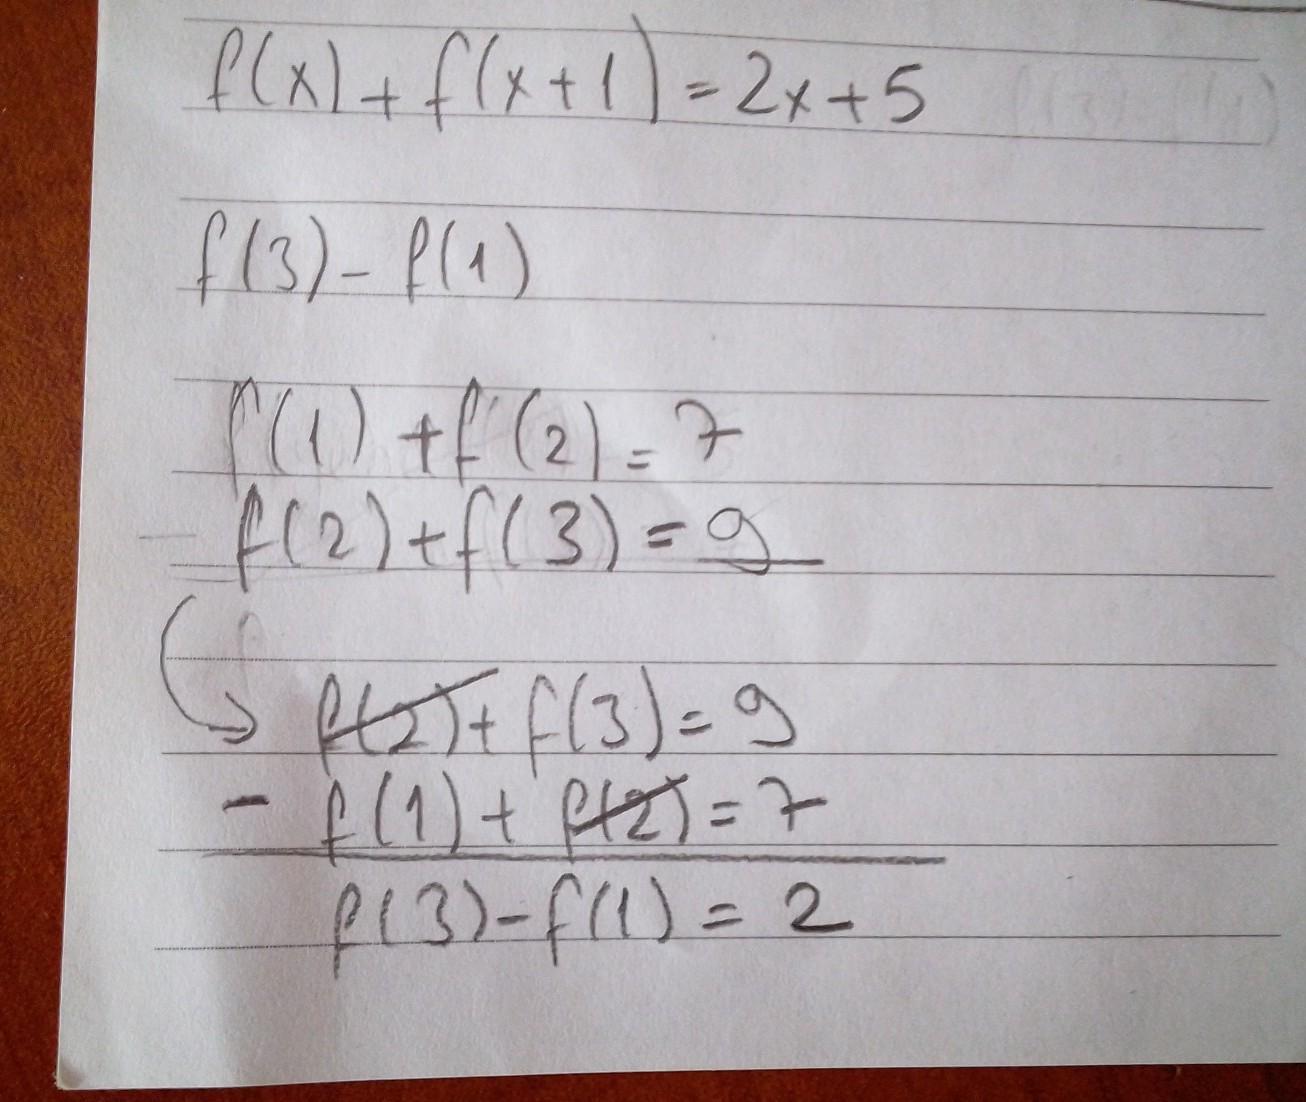 f(x) + f(x+1) = 2x+5
f(3) - f(1)
f(1) + f(2) = 7
f(2) + f(3) = 9
f(2) + f(3) = 9
- f(1) + f(2) = 7
f(3) - f(1) = 2